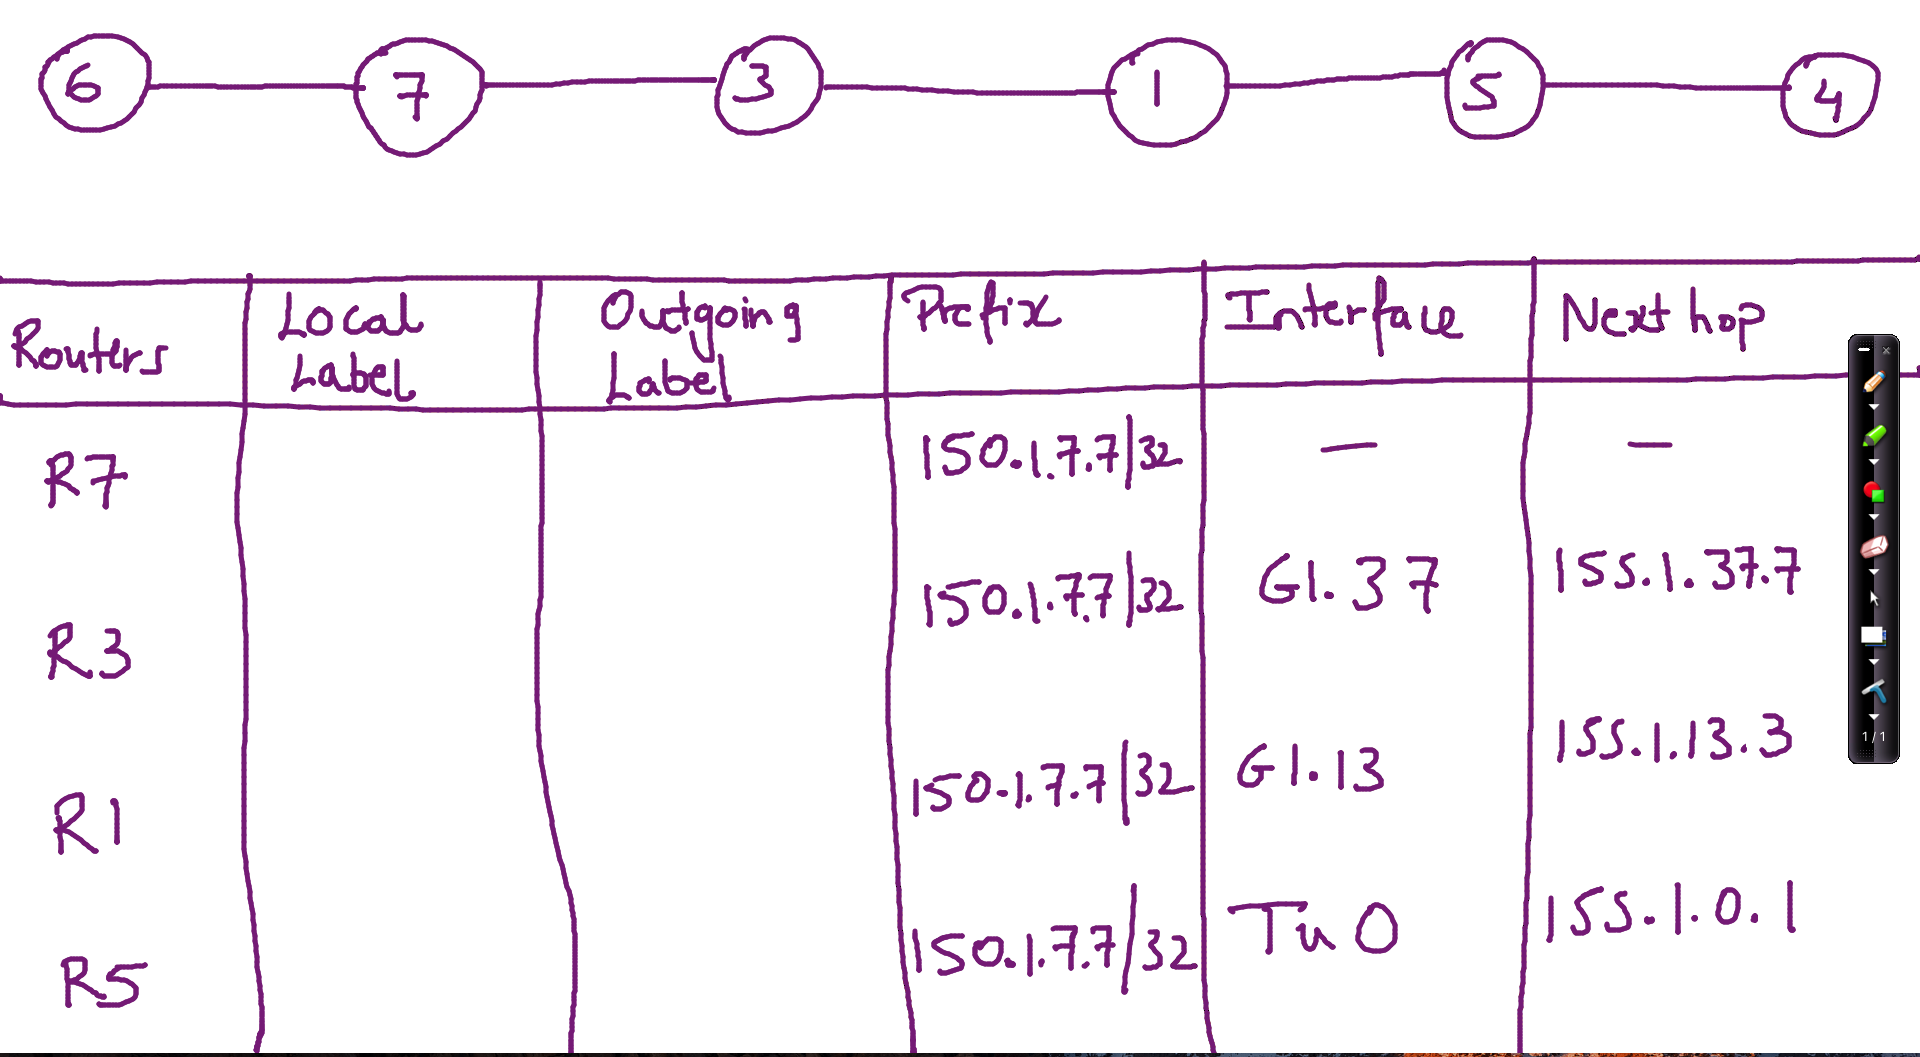 6 7 3 1 5 4
Routers Local Label Outgoing Label Prefix Interface Next hop
R7 150.1.7.7/32 — —
R3 150.1.7.7/32 G1.37 155.1.37.7
R1 150.1.7.7/32 G1.13 155.1.13.3
R5 150.1.7.7/32 Tu0 155.1.0.1
1/1